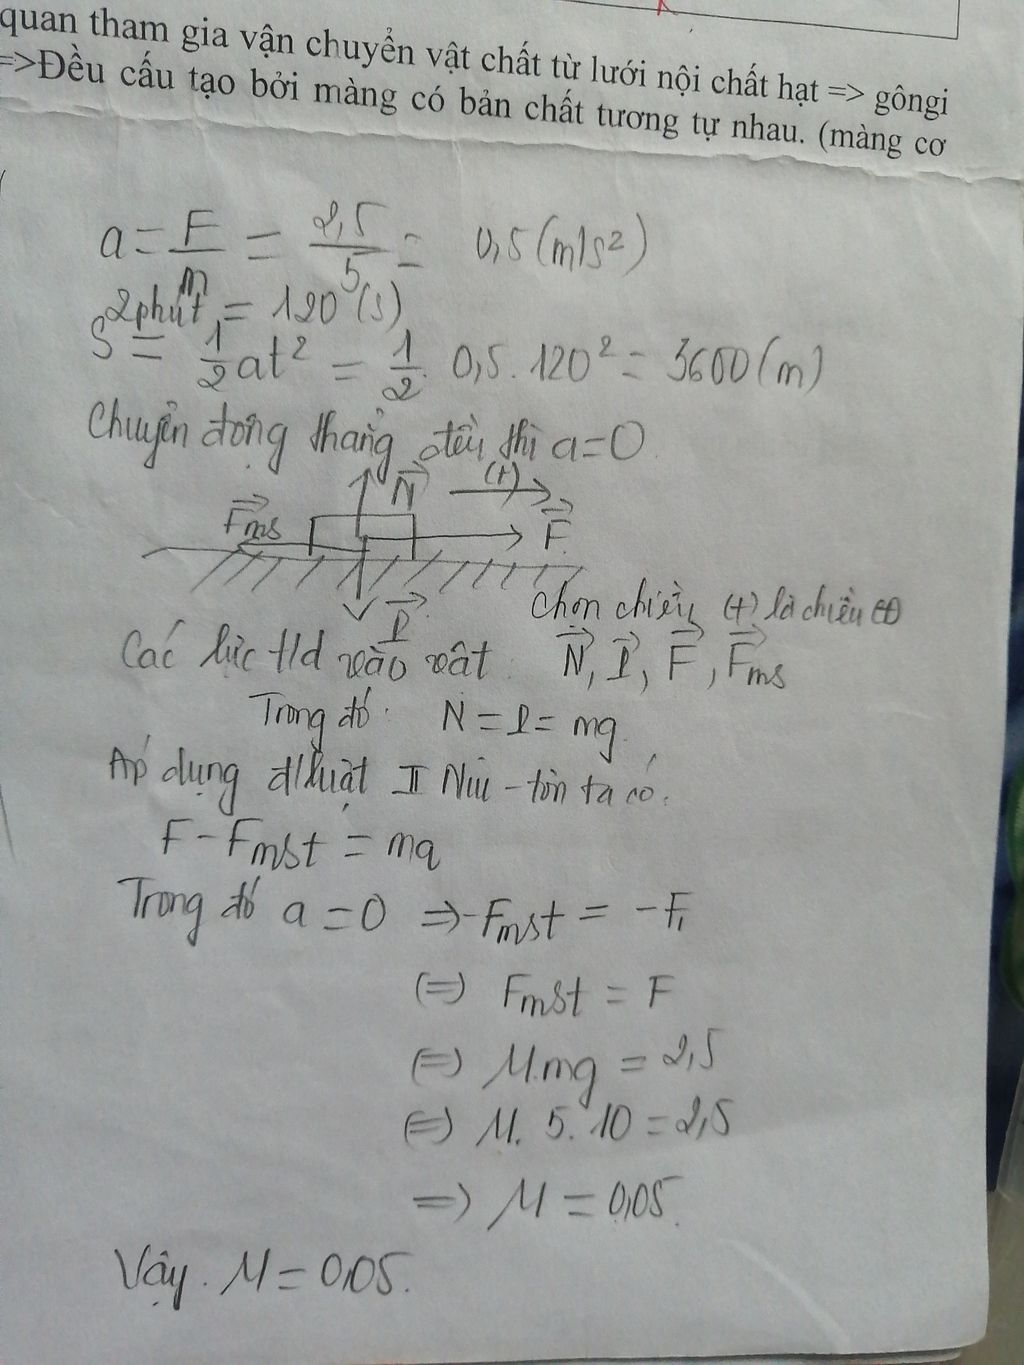 quan tham gia vận chuyển vật chất từ lưới nội chất hạt => gôngi
=>Đều cấu tạo bởi màng có bản chất tương tự nhau. (màng cơ
a = F/m = 2,5/5 = 0,5 (m/s²)
2 phút = 120 (s)
S = 1/2 at² = 1/2 . 0,5 . 120² = 3600 (m)
Chuyển động thẳng đều thì a = 0.
N (+)
Fms F
P Chọn chiều (+) là chiều CĐ
Các lực t/d vào vật : N, P, F, Fms
Trong đó : N = P = mg.
Áp dụng đ/luật II Niu-tơn ta có:
F - Fmst = ma
Trong đó a = 0 => -Fmst = -F
(=) Fmst = F
(=) μ.mg = 2,5
(=) μ. 5. 10 = 2,5
=> μ = 0,05.
Vậy. μ = 0,05.